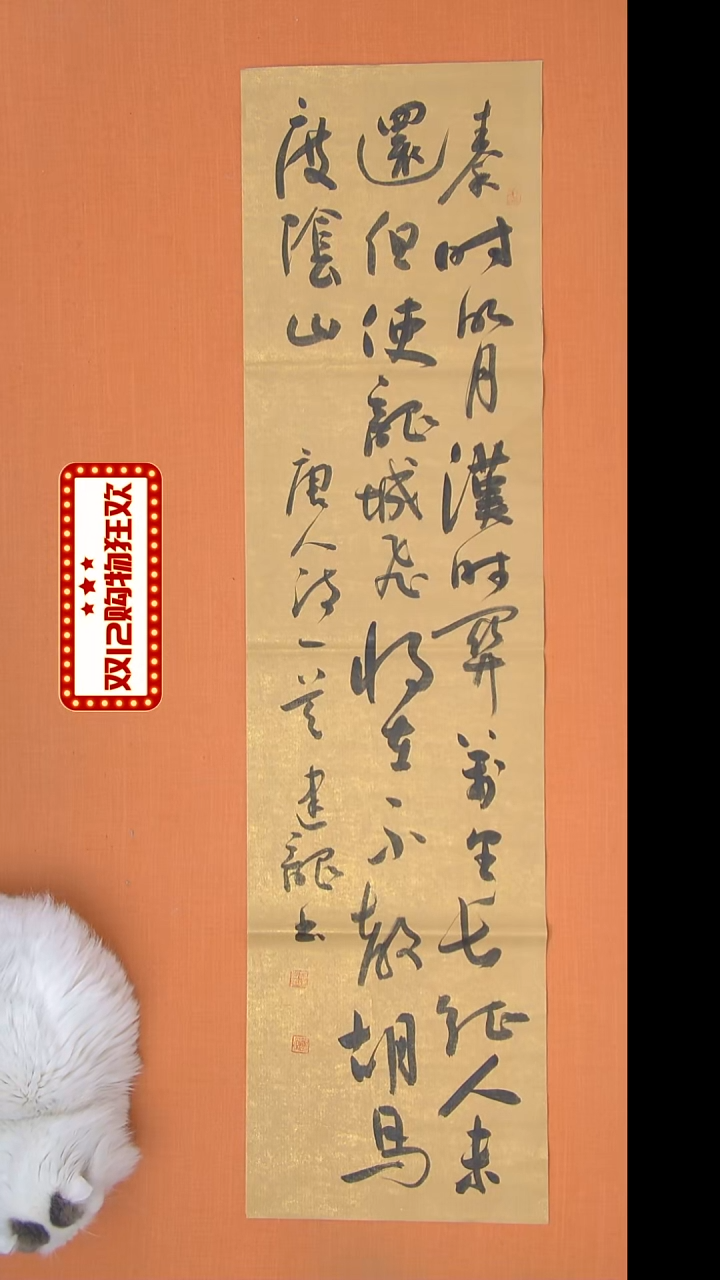 秦時明月漢時關萬里長征人未
還但使龍城飛將在不教胡馬
度陰山
唐人詩一首 建龍書
双12购物狂欢